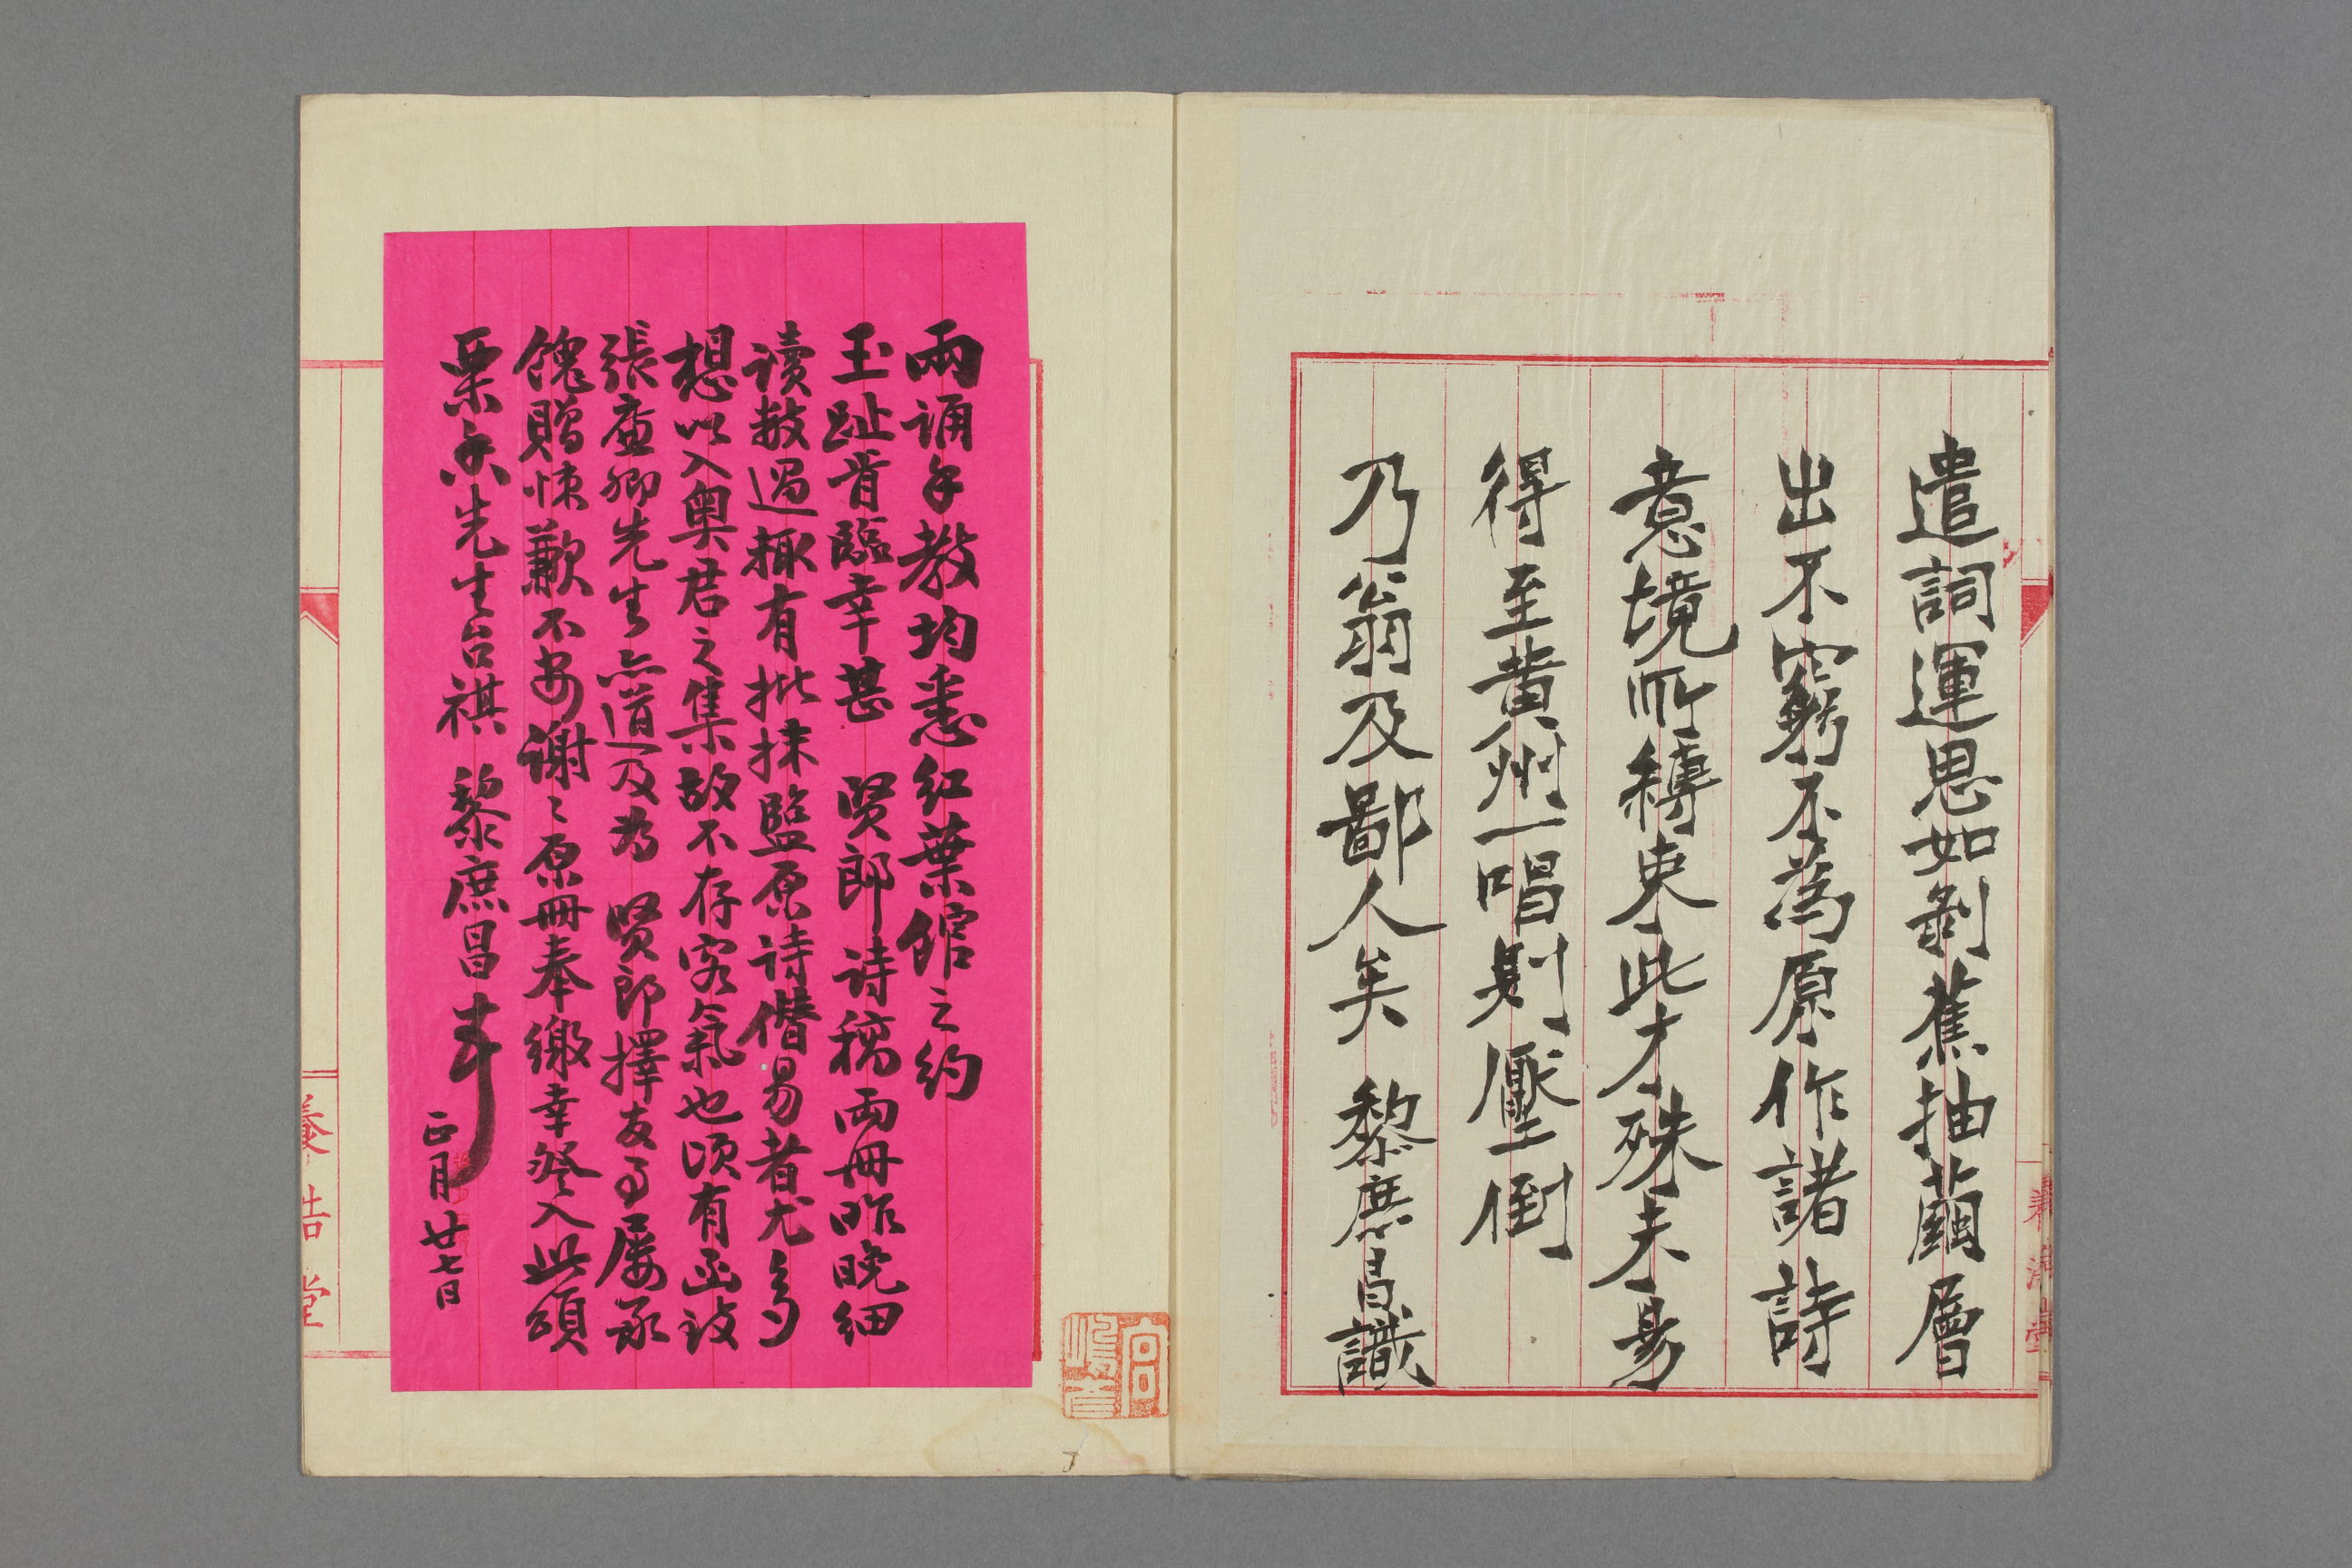 遣詞運思如剝蕉抽繭層
出不窮不為原作諸詩
意境所縛束此才殊未易
得至黃州一唱則壓倒
乃翁及鄙人矣 黎庶昌識
兩誦手教均悉紅葉館之約
玉趾肯臨幸甚 賢郎詩稿兩冊昨晚細
读数過輒有批抹監原詩僭易者尤多
想以入奧君之集故不存客氣也頃有函致
張廉卿先生亦道及為 賢郎擇友事屢承
餽贈悚歉不安谢〻原冊奉繳幸詧入此頌
栗香先生台祺 黎庶昌
正月廿七日
養浩堂
養浩堂